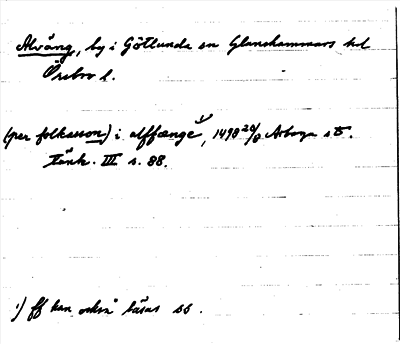 Alväng, by i Götlunda sn Glanshammars hd
Örebro l.
(per folkasson) i alffænge¹⁾, 1490 20/8 Arboga stb.
Tänk. III s. 88.
¹⁾ ff kan också läsas ss.